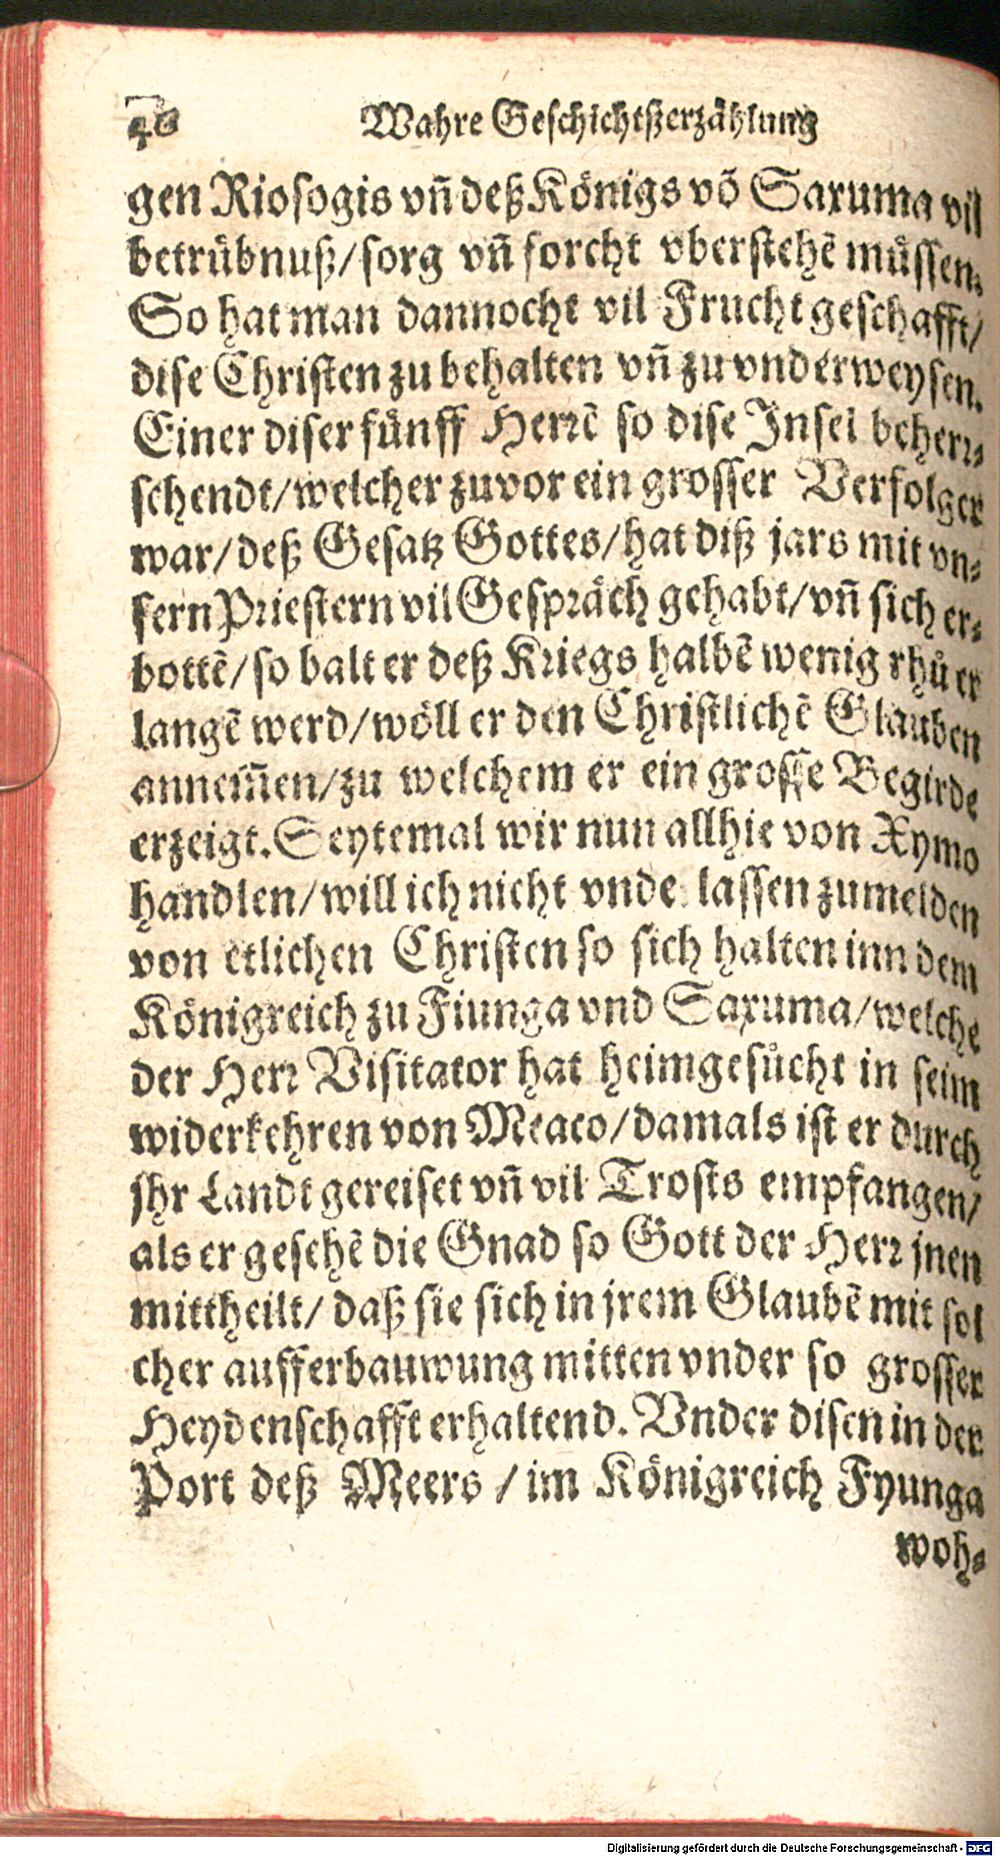 46 Wahre Geschichtßerzählung
gen Riosogis vñ deß Königs võ Saxuma vil
betrübnuß/sorg vñ forcht vberstehẽ müssen.
So hat man dannocht vil Frucht geschafft/
dise Christen zu behalten vñ zu vnderweysen.
Einer diser fünff Herrẽ so dise Insel beherr-
schendt/welcher zuvor ein grosser Verfolger
war/deß Gesatz Gottes/hat diß jars mit vn-
sern Priestern vil Gespräch gehabt/vñ sich er-
bottẽ/so balt er deß Kriegs halbẽ wenig rhů er
langẽ werd/wöll er den Christlichẽ Glauben
annem̃en/zu welchem er ein grosse Begirde
erzeigt. Seytemal wir nun allhie von Xymo
handlen/will ich nicht vnde lassen zumelden
von etlichen Christen so sich halten inn dem
Königreich zu Fiunga vnd Saxuma/welche
der Herr Visitator hat heimgesůcht in seim
widerkehren von Meaco/damals ist er durch
jhr Landt gereiset vñ vil Trosts empfangen/
als er gesehẽ die Gnad so Gott der Herr jnen
mittheilt/ daß sie sich in jrem Glaubẽ mit sol
cher aufferbauwung mitten vnder so grosser
Heydenschafft erhaltend. Vnder disen in der
Port deß Meers / im Königreich Fyunga
woh-
Digitalisierung gefördert durch die Deutsche Forschungsgemeinschaft - DFG